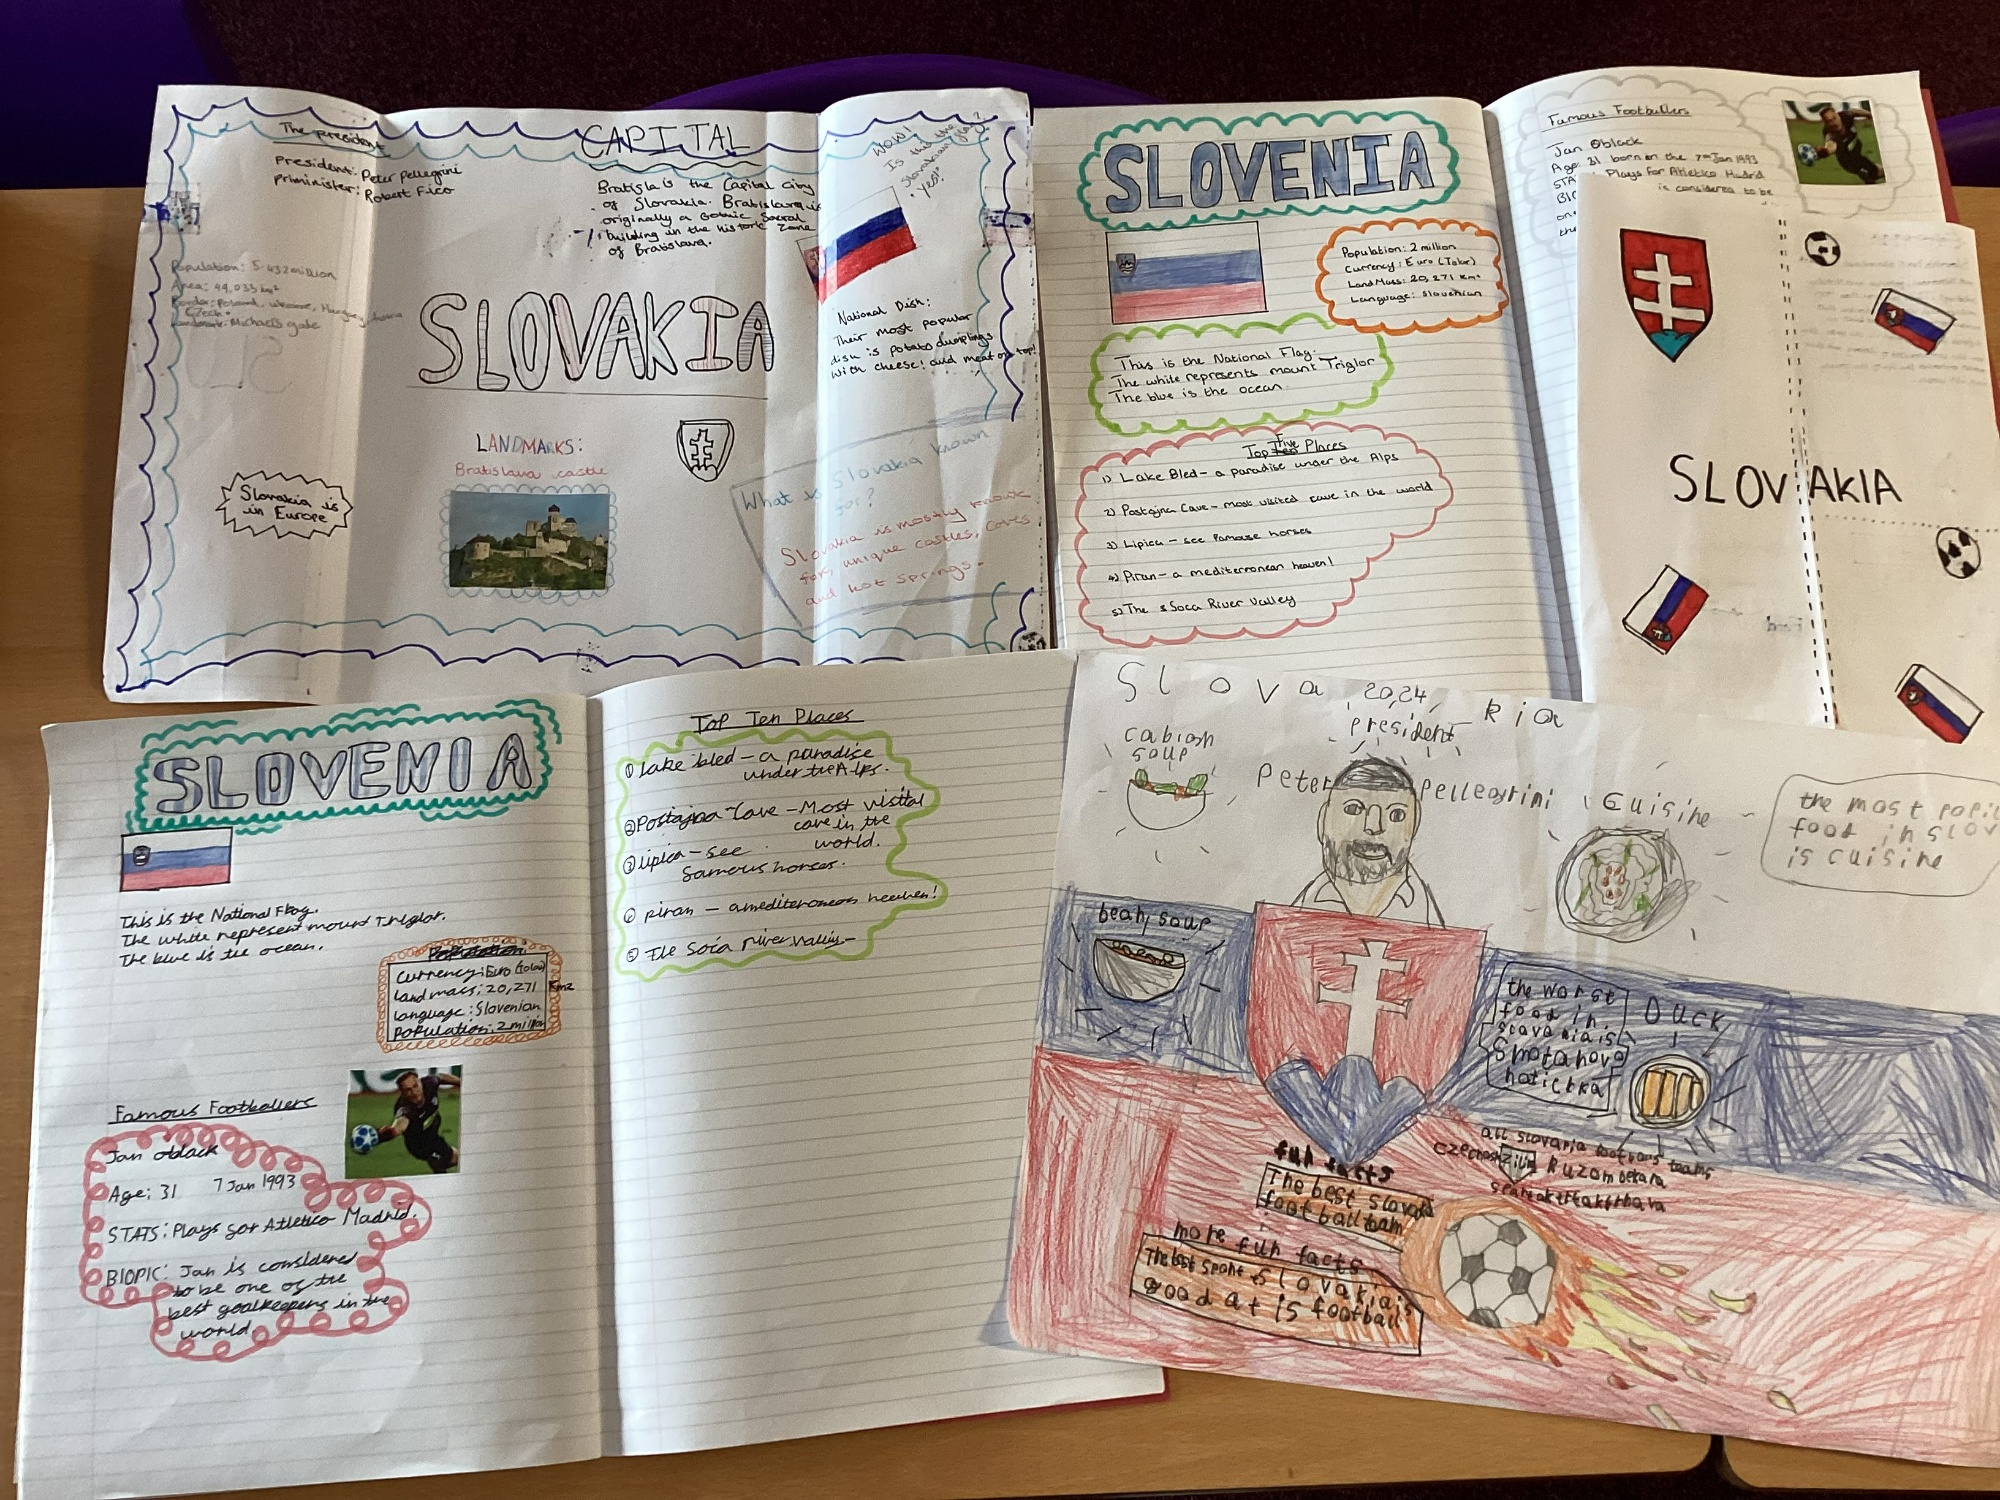 The president
President: Peter Pellegrini
priminister: Robert Fico
Population: 5.432 million
Area: 49,035 km²
Border: Poland, Ukraine, Hungary,
Czech.
Landmark: Michaels gate
Slovakia is
in Europe
CAPITAL
Bratisla is the Capital city
of Slovakia. Bratislava is
originally a Gothic Sacral
building in the historic zone
of Bratislava.
SLOVAKIA
LANDMARKS:
Bratislava castle
WOW!
Is this the
Slovakian flag?
Yes!
National Dish:
Their most popular
dish is potato dumplings
with cheese! and meat on top!
What is Slovakia known
for?
Slovakia is mostly known
for, unique castles, caves
and hot springs.
SLOVENIA
Population: 2 million
Currency: Euro (Tolar)
Land Mass: 20,271 km²
Language: Slovenian
This is the National Flag.
The white represents mount Triglor
The blue is the ocean
Top Five Places
1) Lake Bled - a paradise under the Alps
2) Postojna Cave - most visited cave in the world
3) Lipica - see famouse horses
4) Piran - a mediterranean heaven!
5) The Soca River Valley
Famous Footballers
Jan Oblack
Age: 31 born on the 7th Jan 1993
Plays for Atletico Madrid
is considered to be
SLOVAKIA
SLOVENIA
This is the National Flag.
The white represent mount Triglor.
The blue is the ocean.
Currency: Euro (tolar)
Land mass; 20,271 Km2
language: Slovenian
Population: 2 million
Famous Footballers
Jan oblack
Age; 31 7 Jan 1993
STATS: Plays for Atletico Madrid.
BIOPIC: Jan is considered
to be one of the
best goalkeepers in the
world
Top Ten Places
① Lake bled - a paradise
under the Alps.
② Postajna Cave - Most visital
cave in the
world.
③ lipica - see
famous horses.
④ piran - a mediteroneon heaven!
⑤ The Soca river vallis -
Slova 20,24 kia
president
Peter Pellegrini
cabiash
soup
Cuisine
the most
food in slov
is cuisine
bean, soup
the worst
food in
slavania is
Smotanova
naticbka
Duck
all slovania footvons teams,
Ruzombekara
fun facts
The best slovak
football team
more fun facts
The best sport slovakiais
good at is football